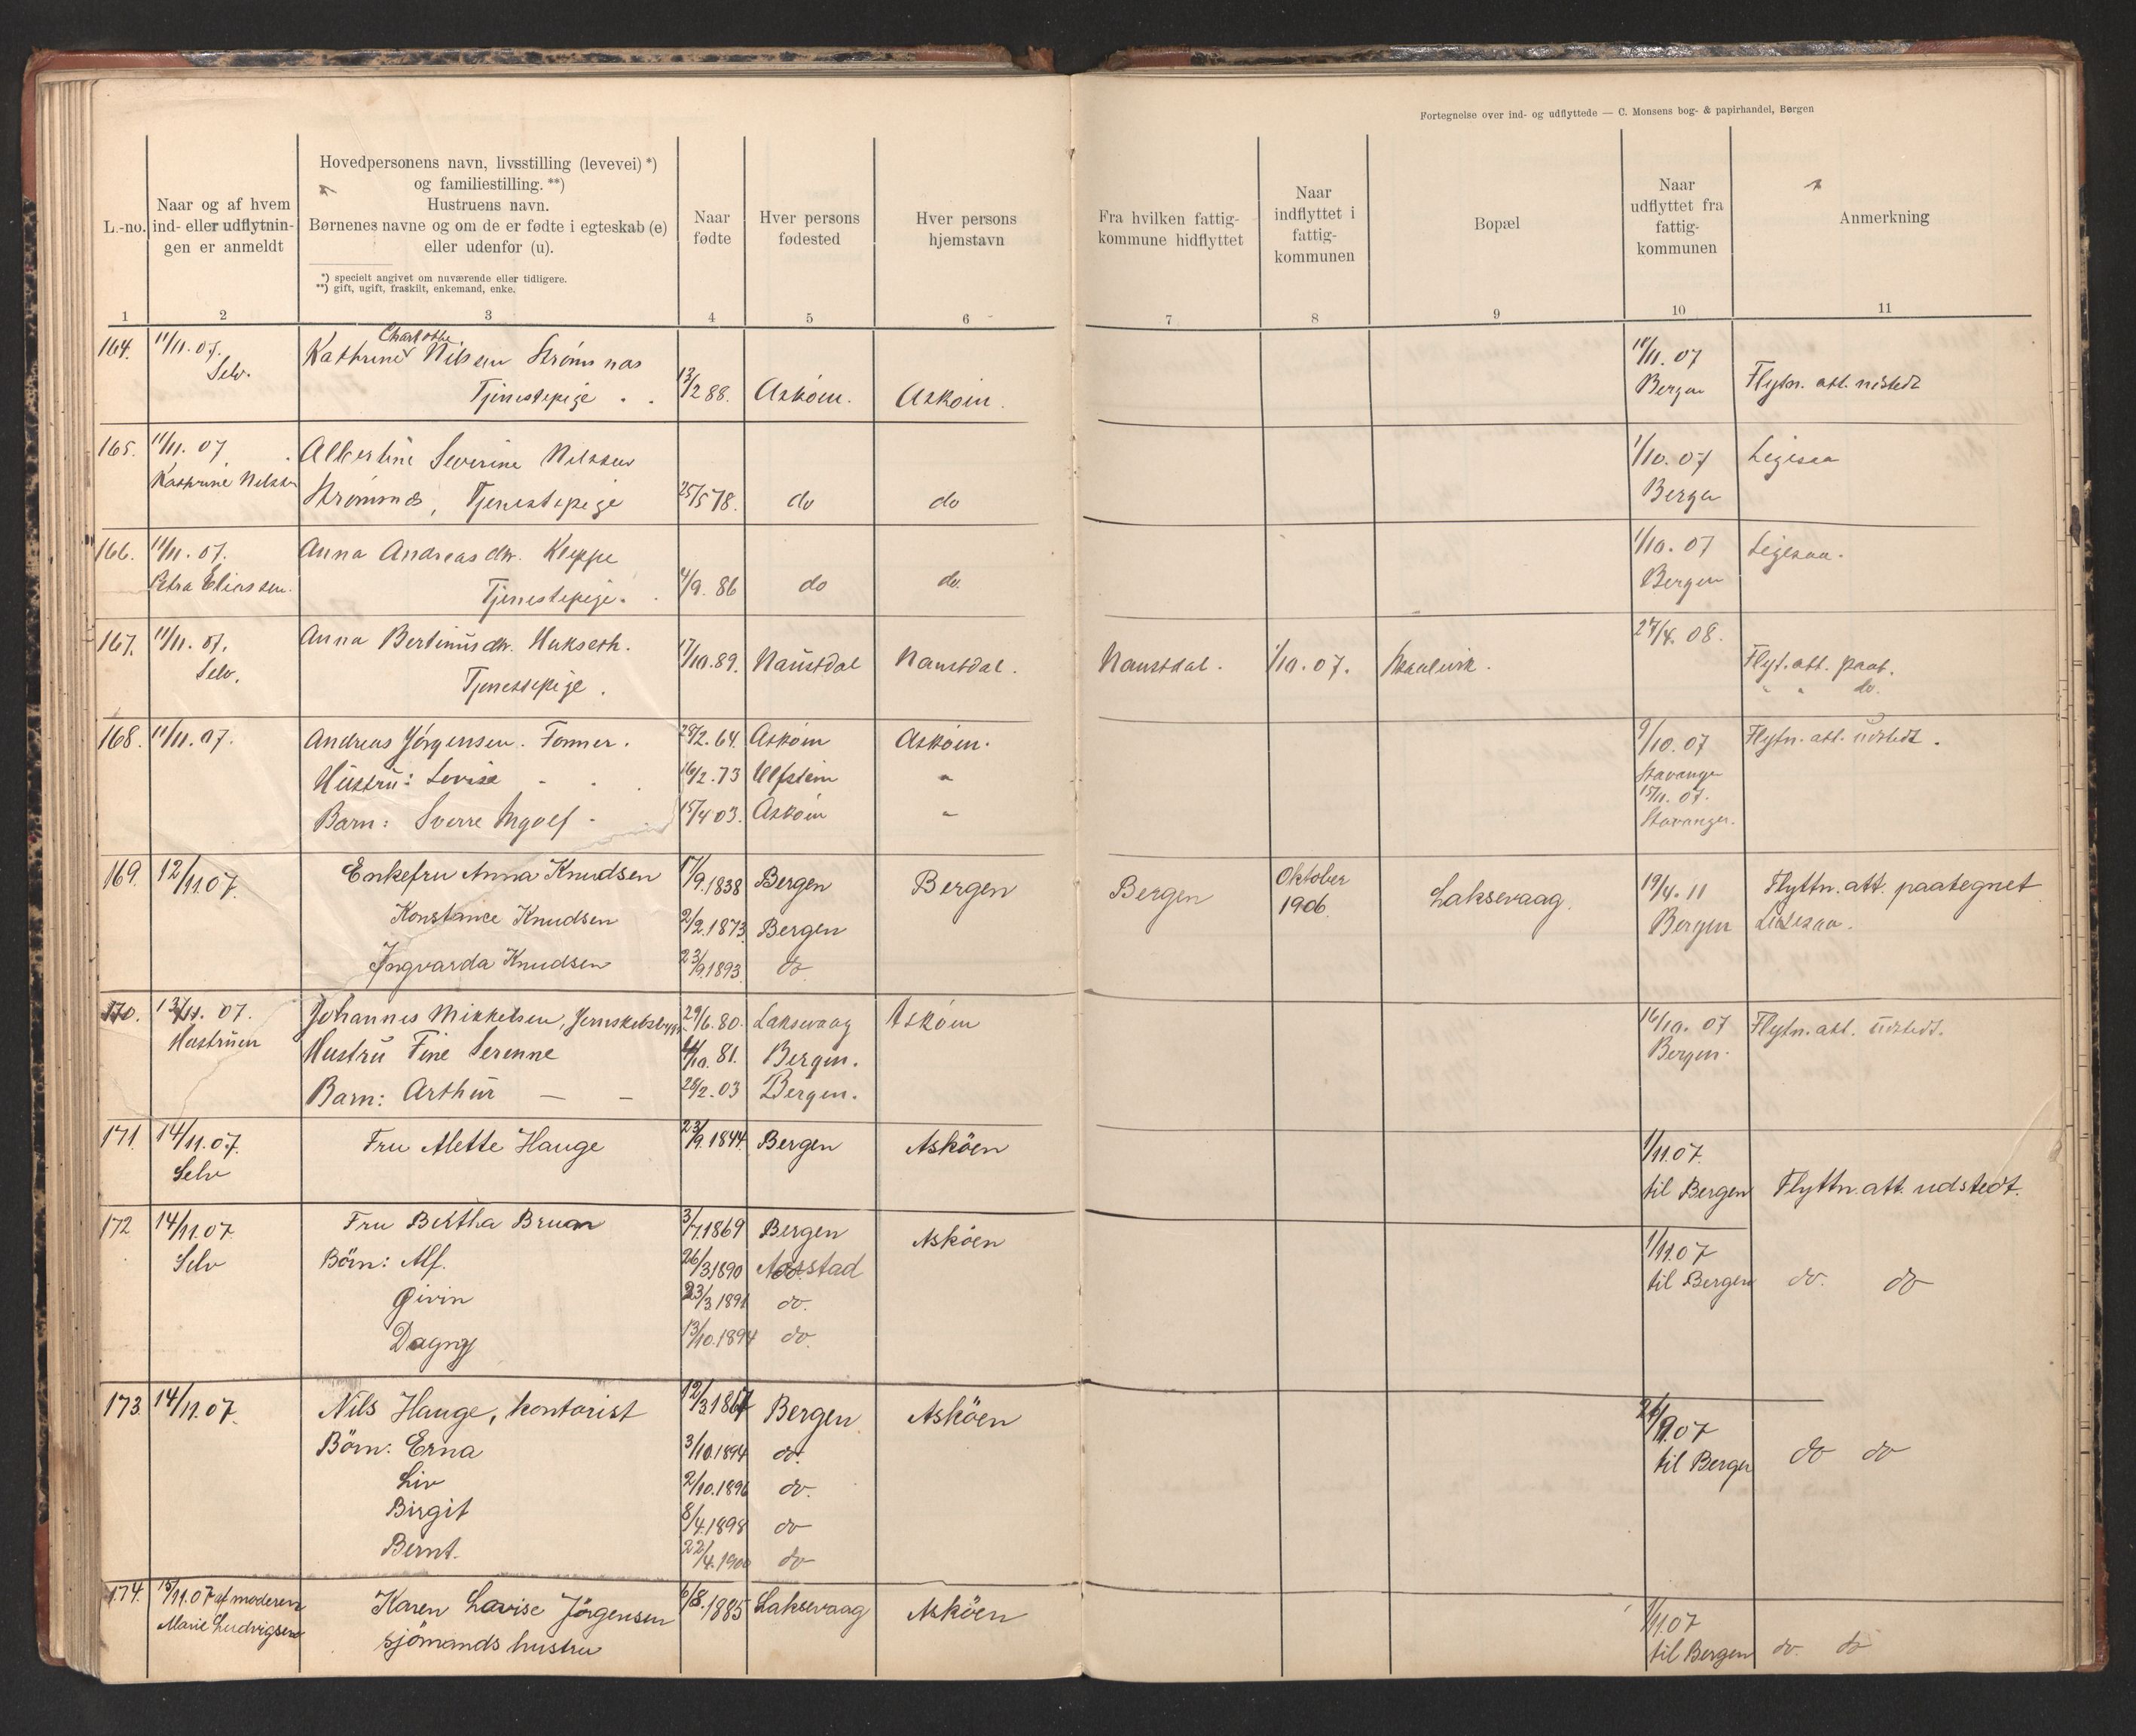 Fortegnelse over ind- og udflyttede — C. Monsens bog- & papirhandel, Bergen
L.-no.
Naar og af hvem
ind- eller udflytnin-
gen er anmeldt
Hovedpersonens navn, livsstilling (levevei) *)
og familiestilling. **)
Hustruens navn.
Børnenes navne og om de er fødte i egteskab (e)
eller udenfor (u).
*) specielt angivet om nuværende eller tidligere.
**) gift, ugift, fraskilt, enkemand, enke.
Naar
fødte
Hver persons
fødested
Hver persons
hjemstavn
Fra hvilken fattig-
kommune hidflyttet
Naar
indflyttet i
fattig-
kommunen
Bopæl
Naar
udflyttet fra
fattig-
kommunen
Anmerkning
1 2 3 4 5 6 7 8 9 10 11
164. 11/11.07. Charlotte 11/11.07
Selv. Kathrine Nilsen Strømsnas Bergen
Tjenestepige 13/2 88. Askøen. Askøen. Flytn. att. udstedt
165. 11/11. 07 Albertine Severine Nilssen 1/10.07 Ligesaa
Kathrine Nilssen Strømsnæs, Tjenestepige 25/5 78. do do Bergen
166. 11/11. 07. Anna Andreasdtr. Kleppe 1/10.07 Ligesaa.
Petra Eliassen. Tjenestepige. 4/9. 86 do do. Bergen
167. 11/11. 07. Anna Bertinusdtr. 27/4. 08.
Selv. Tjenestepige. 17/10.89. Naustdal Naustdal. Naustdal. 1/10.07. Flyt. att. paat.
" " do.
168. 11/11.07. Andreas Jørgensen. Former. 29/2.64. Askøen Askøen. 9/10.07 Flytn. att. udstedt.
Hustru: Lovise 16/2.73 Utstein " Stavanger
15/11.07.
Barn: Sverre Ingolf 15/4 03. Askøen " Stavanger.
169. 12/11.07. Enkefru Anna Knudsen 17/9.1838 Bergen Bergen Bergen Oktober 1906. Laksevaag. 19/4.11 Flyttn. att. paategnet
Konstance Knudsen 2/2.1873 Bergen Bergen Ligesaa.
Ingvarda Knudsen 23/9.1893 do
170. 13/11. 07. Johannes Mikkelsen, Jernskibsbygg. 29/6.80. Laksevaag Askøen 16/10. 07 Flytn. att. udstedt.
Hustruen Hustru Fine Serenne /10. 81. Bergen. Bergen.
Barn: Arthur — — 28/2.03 Bergen.
171. 14/11.07. Fru Alette Hauge 23/9.1844. Bergen Askøen 1/11.07.
Selv til Bergen Flyttn. att. udstedt.
172 14/11.07. Fru Bertha Bruun 3/7.1869 Bergen Askøen 1/11.07
Selv Børn: Alf. 26/3.1890 Aarstad til Bergen do. do
Givin 23/3.1891 do.
Dagny 13/10.1894 do.
173. 14/11.07. Nils Hauge, kontorist 12/3.1867 Bergen Askøen 24/9.07
Børn: Erna 3/10.1894 do. til Bergen do do
Liv 2/10.1896 do.
Birgit 8/4.1898 do
Bernt. 22/4.1900 do
174. 15/11.07 af moderen Karen Lovise Jørgensen 6/8.1885 Laksevaag Askøen 1/11.07
Marie Ludvigsen sjømands hustru til Bergen do. do